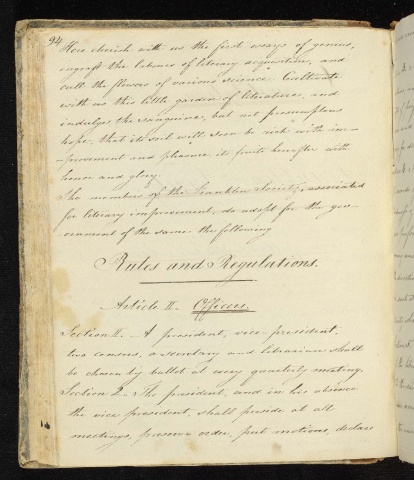 94
Here cherish with us the first essays of genius,
ingraft the labours of literary acquisition, and
cull the flowers of various science. Cultivate
with us this little garden of literature, and
indulge the sanguine, but not presumptuous
hope, that its soil will soon be rich with im-
-provement and pleasure, its fruits hereafter with
honor and glory.
The members of the Franklin Society, associated
for literary improvement, do adopt for the gov-
-ernment of the same the following
Rules and Regulations.
Article II. Officers.
Section II. A president, vice president,
two censors, a secretary and librarian shall
be chosen by ballot at every quarterly meeting.
Section 2. The president, and in his absence
the vice president, shall preside at all
meetings, preserve order, put motions, declare